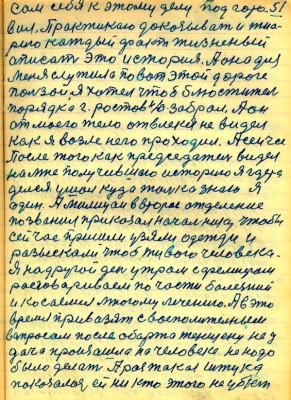 сам себя к этому делу под го
вил. Практикаю доказывать и
каждый факт жизненный
описать это история. А она для
Меня служила по вот этой дороге
пользой я хотел чтоб блюститель
порядка г. ростов забрал. А он
от моего тело отвлекся не видел
как я возле него проходил. А сейчас
После того как председатель видел
на мне получившаю историю я где
делся ушол куда только знаю я
один. А милиция второе отделение
позвания приказал начальнику чтобы
сей час пришли узяли одежду и
разыскали чтоб живого человека.
Я на другой день утром с фелшаром
разговариваем по части болезний
и косаемся многому лечению. А в это
время привозят с восполительным
вопросам после обарта женщину не у
дача произашла на человеке не надо
было делат А раз такая штука
показалось ей ни кто этого не убъет